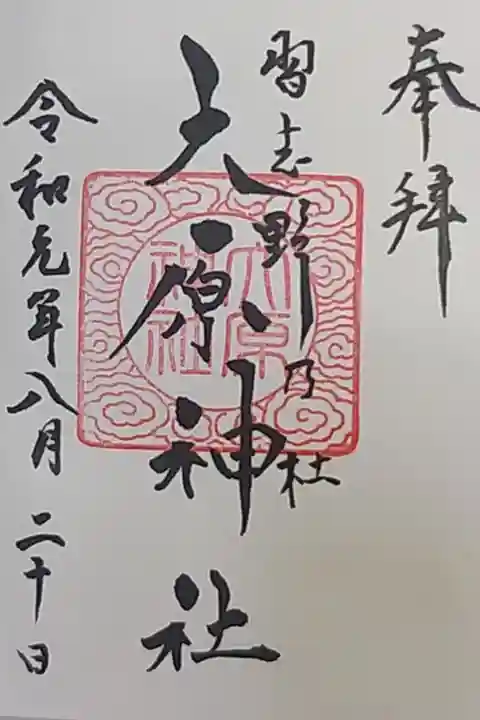 奉拝
習志野乃杜
大原神社
大原神社
令和元年八月二十日